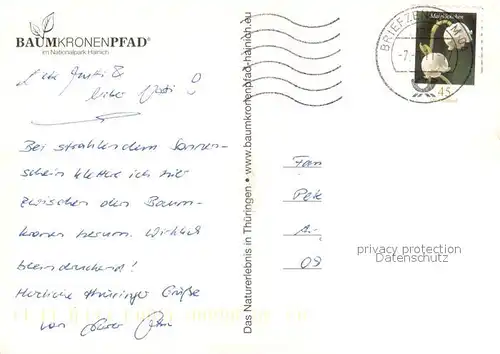 BAUMKRONENPFAD®
im Nationalpark Hainich
Liebe
lieber
Bei strahlendem Sonnen-
schein kletter ich hier
zwischen den Baum-
kronen herum. Wirklich
beeindruckend!
Herzliche thüringer Grüße
von
Das Naturerlebnis in Thüringen • www.baumkronenpfad-hainich.eu
BRIEFZE
-7.
Maiglöckchen
45
Fam
Pete
08
privacy protection
Datenschutz